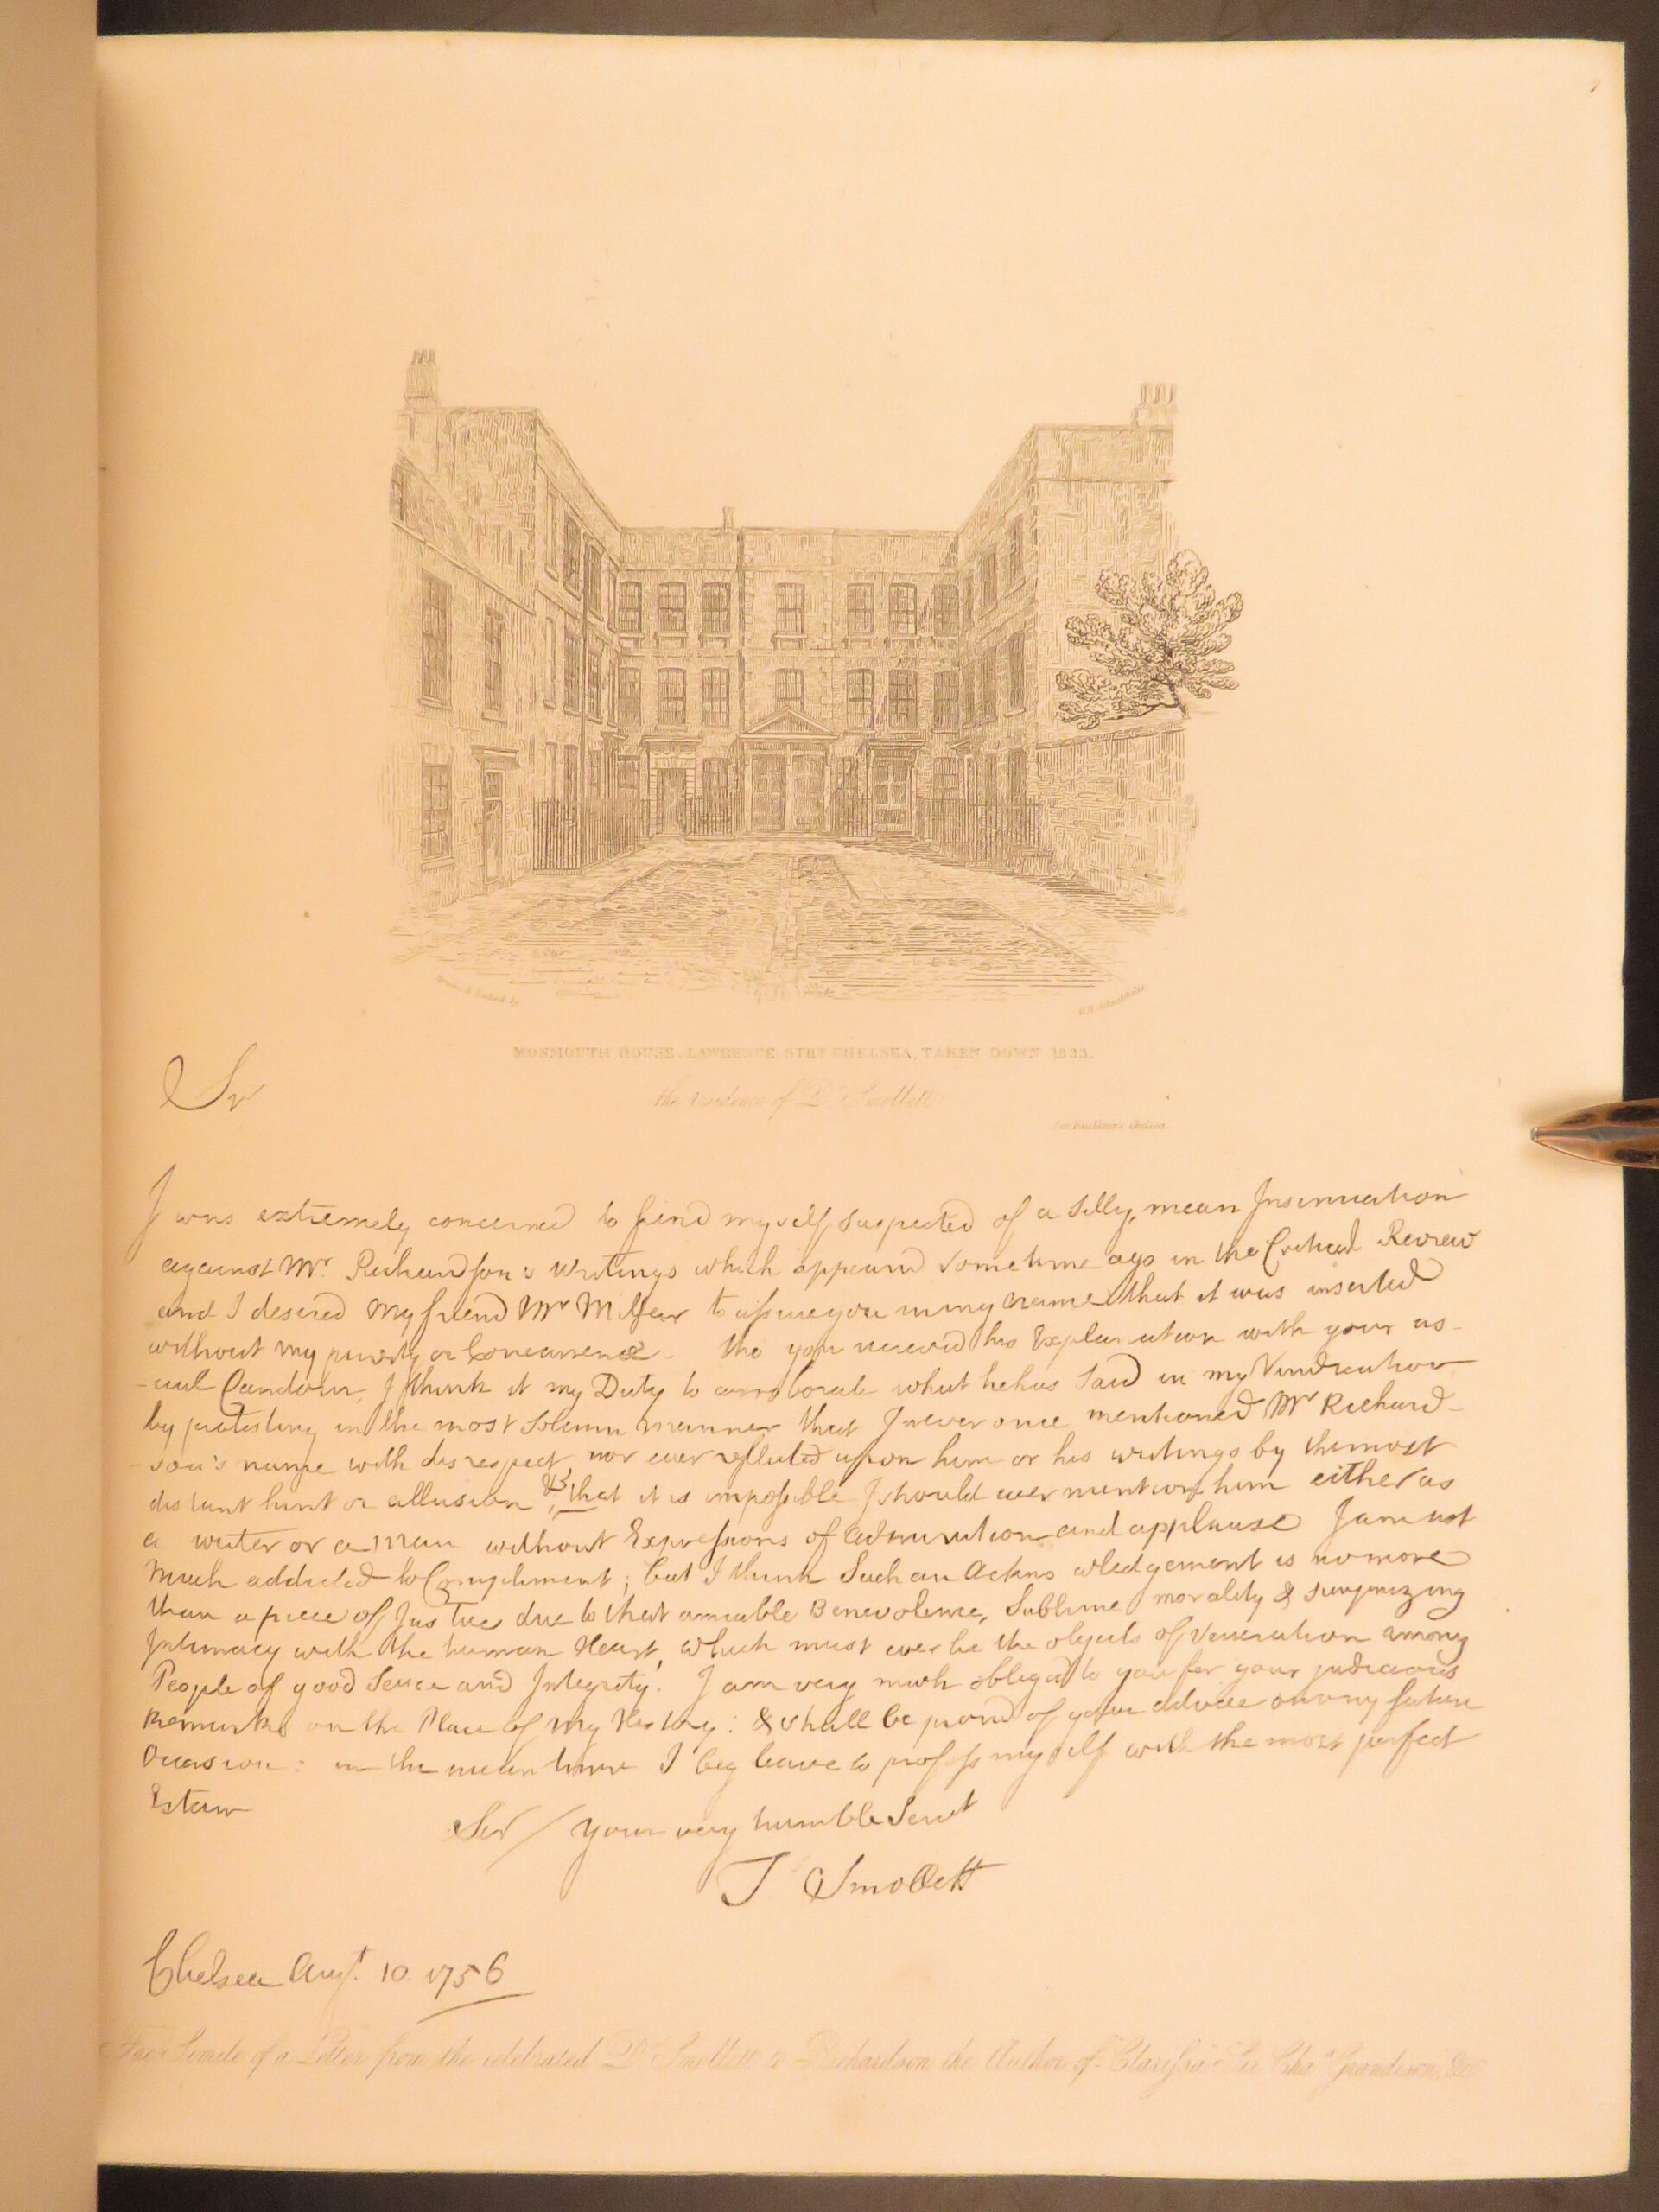 MONMOUTH HOUSE, LAWRENCE STRT CHELSEA, TAKEN DOWN 1833.
the residence of Dr Smollett
See Faulkner's Chelsea
Sr
I was extremely concerned to find myself suspected of a silly, mean Insinuation
against Mr. Richardson's Writings which appeard sometime ago in the Critical Review
and I desired my friend Mr Millar to assure you in my name that it was inserted
without my privity or Concurrence. Tho you received his Explanation with your us-
-ual Candour, I think it my Duty to corroborate what he has said in my Vindication
by protesting in the most solemn manner that I never once mentioned Mr Richard-
-son's name with disrespect, nor ever reflected upon him or his writings by the most
distant hint or allusion &, that it is impossible I should ever mention him either as
a writer or a man without Expressions of admiration and applause I am not
much addicted to Compliment; but I think such an Acknowledgement is no more
than a piece of Justice due to that amiable Benevolence, Sublime morality & surprizing
Intimacy with the human Heart, which must ever be the objects of Veneration among
People of good Sence and Integrity. I am very much obliged to you for your judicious
Remarks on the Plan of my History: & shall be proud of your advice on any future
Occasion: in the mean time I beg leave to profess myself with the most perfect
Esteem
Sir / your very humble Servt
Ts Smollett
Chelsea Augt. 10. 1756
Fac Simile of a Letter from the celebrated Dr Smollett to Richardson the Author of Clarissa Sir Chas Grandison &c